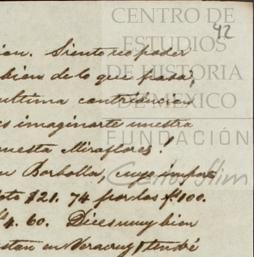 CENTRO DE
ESTUDIOS
DE HISTORIA
DE MÉXICO
FUNDACIÓN
Carlos Slim
42
ion. Siento no poder
bien de lo que pasa,
ultima contribucion
es imaginarte nuestra
nuestra Miraflores!
Borbolla, cuyo import
$21.74 por los $100.
4.60. Dices muy bien
estan en Veracruz